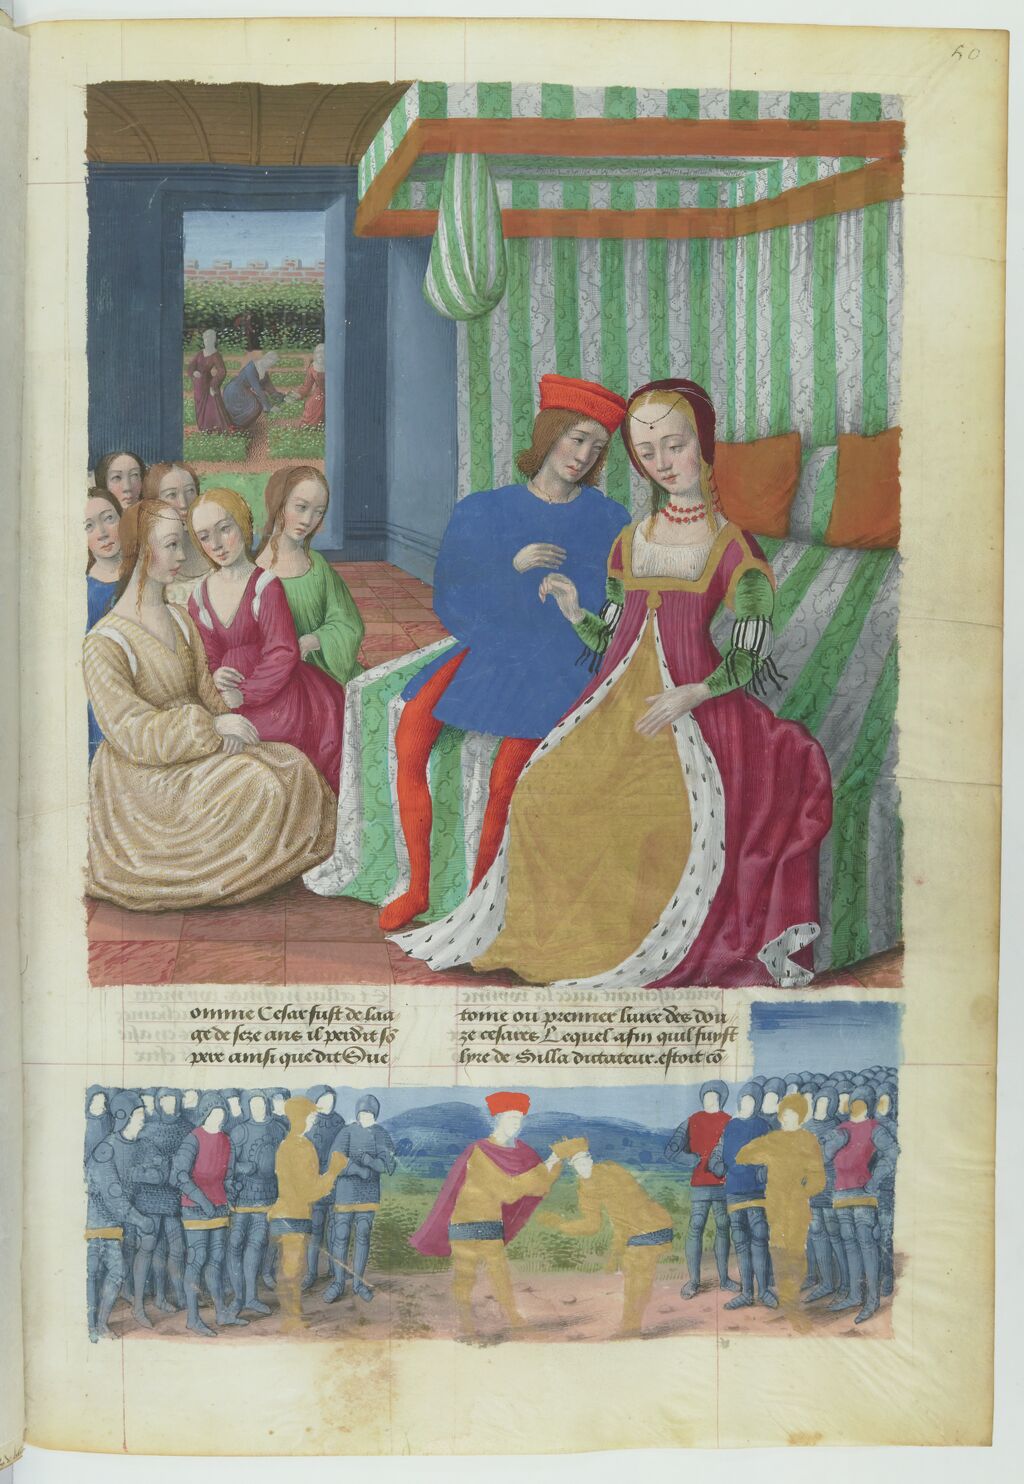 60
omme Cesar fust de laa
ge de seze ans il perdit sõ
pere ainsi que dit Sue
tome ou premier liure des dou
ze cesares Lequel afin quil fuyst
lyre de Silla dictateur. estoit cõ